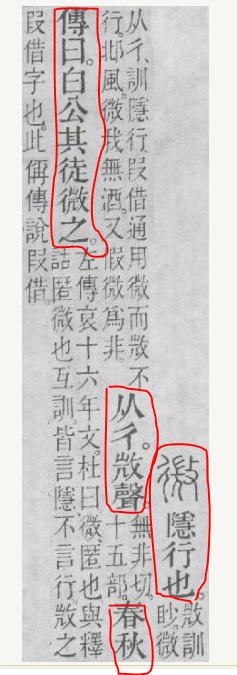 微 隱行也。𢼸訓
眇。微
从彳。訓隱行叚借通用微而𢼸不
行。邶風。微我無酒。又叚微爲非。
从彳。𢼸聲。無非切。
十五部。
春秋
傳曰。白公其徒微之。
左傳哀十六年文。杜曰微。匿也與釋
詁匿微也互訓皆言隱不言行𢼸之
叚借字也。此偁傳說叚借。